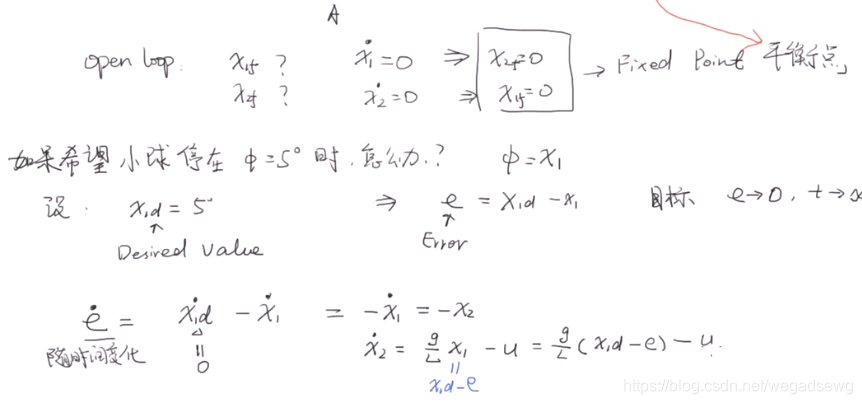 A
open loop: x1f ? ẋ1=0 ⇒ x2f=0 → Fixed Point 平衡点,
x2f ? ẋ2=0 ⇒ x1f=0
如果希望小球停在 φ=5° 时.怎么办.? φ=x1
设: x1d = 5° ⇒ e = x1d -x1 目标 e→0, t→∞
↑ ↑
Desired Value Error
ė = ẋ1d - ẋ1 = -ẋ1 = -x2
随时间变化 ẋ2 = g/L x1 - u = g/L (x1d-e) - u.
॥ 0
॥ x1d-e
https://blog.csdn.net/wegadsewg